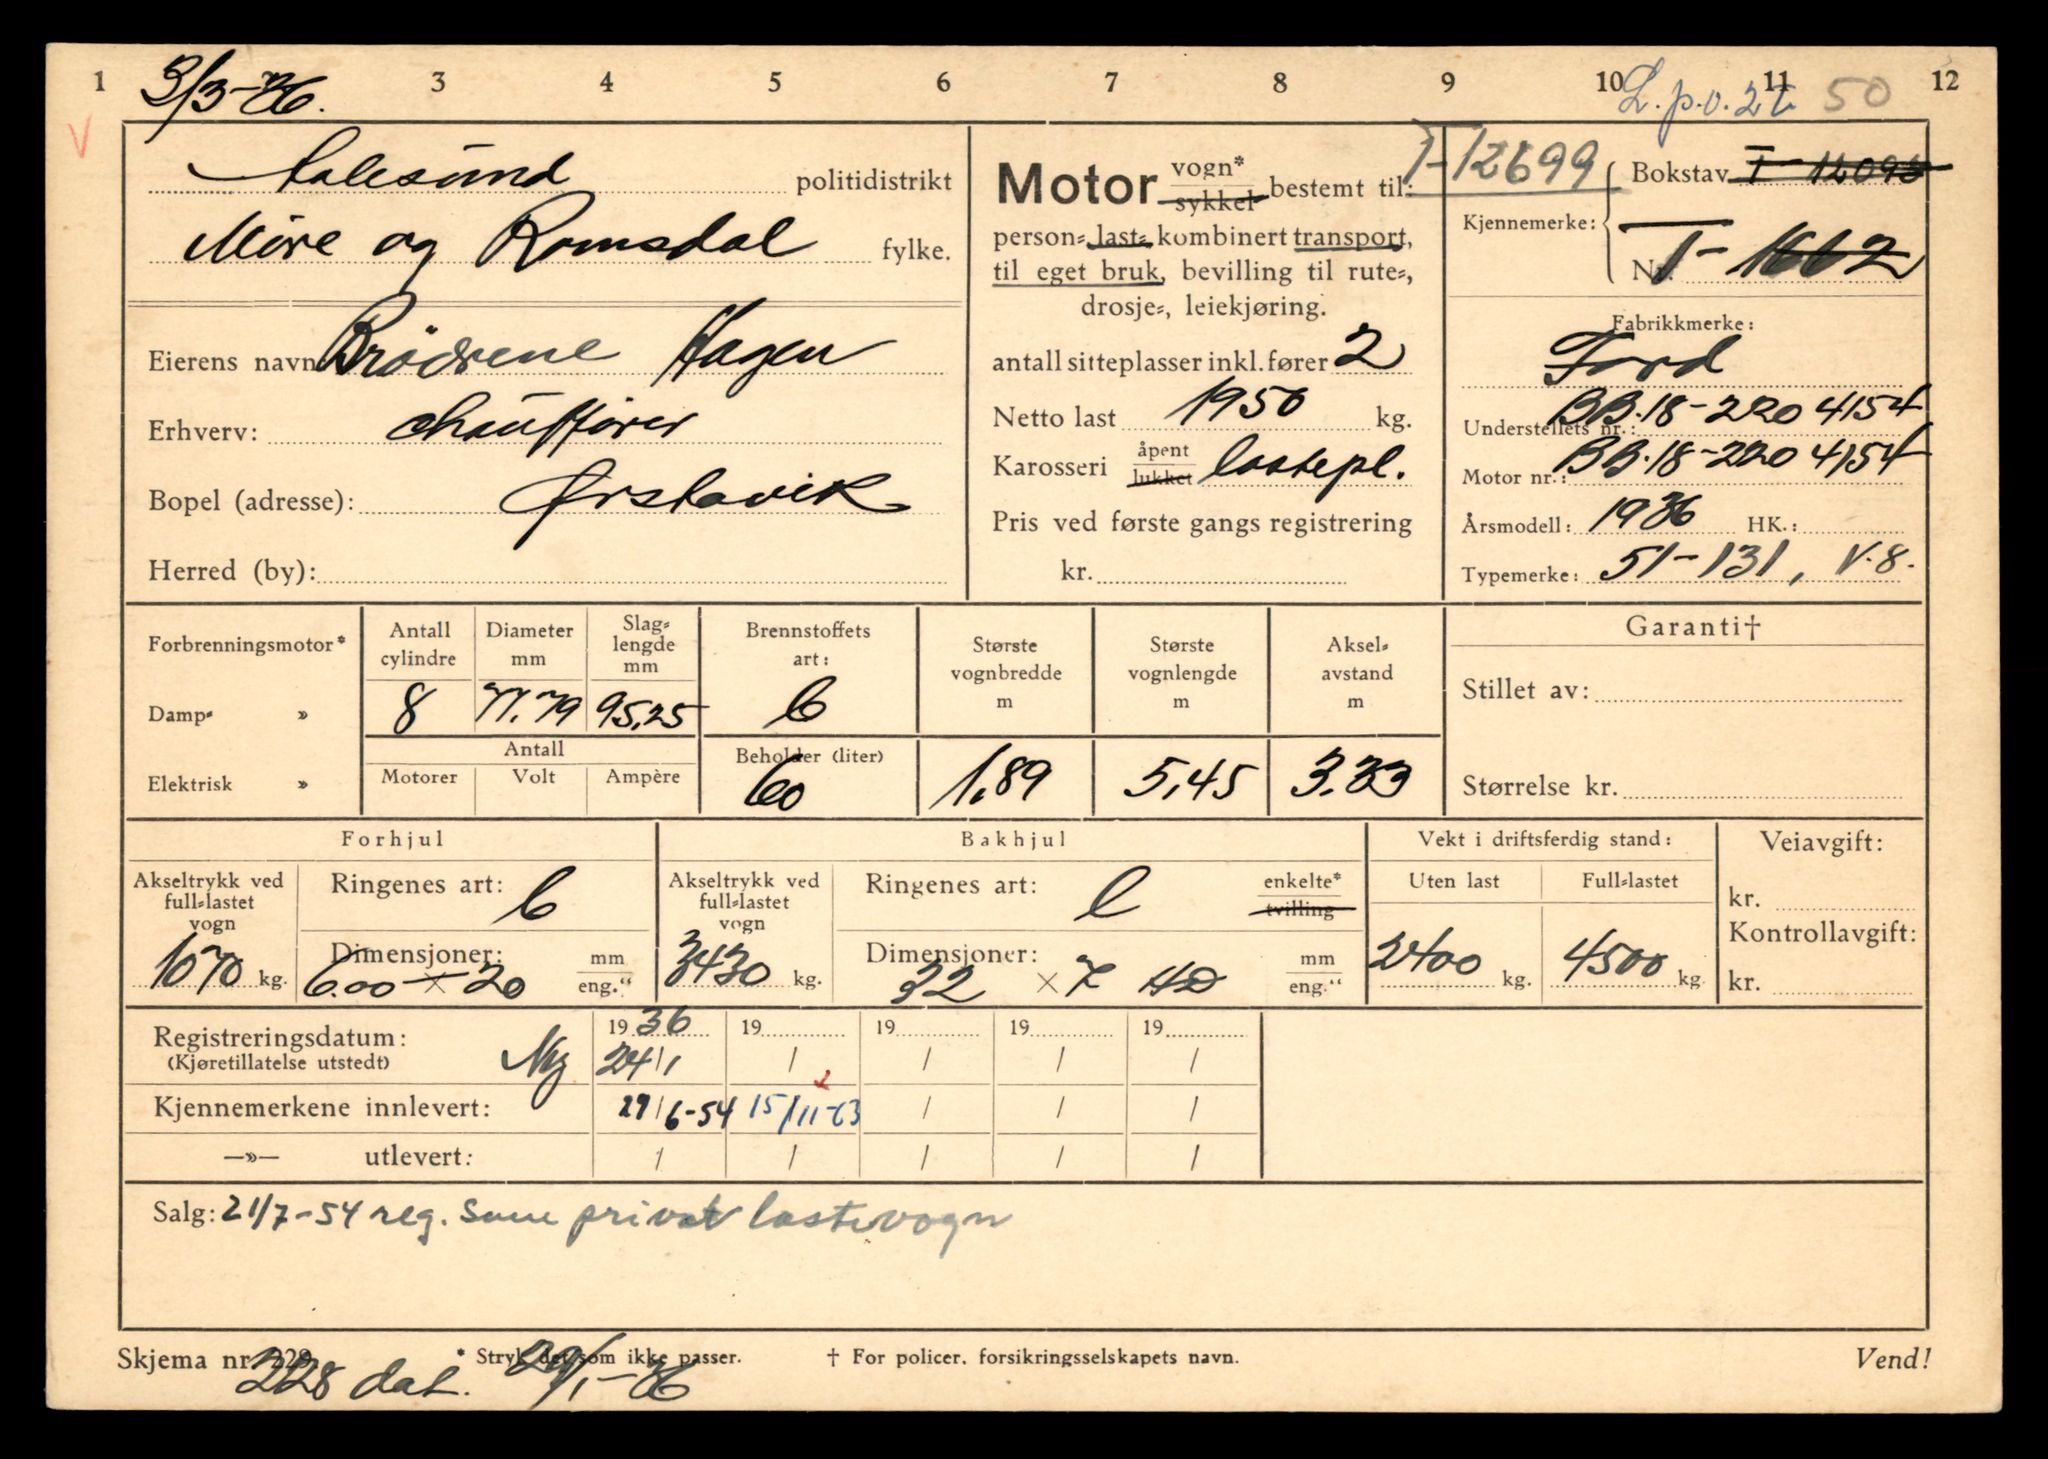 1 3/3-36. 3 4 5 6 7 8 9 10 11 12
L.p.v. 2t 50
V
Aalesund politidistrikt
Møre og Romsdal fylke.
Eierens navn Brödrene Hagen
Erhverv: chauffører
Bopel (adresse): Ørstavik
Herred (by):
Motor vogn* sykkel bestemt til:
person-, last-, kombinert transport,
til eget bruk, bevilling til rute-,
drosje-, leiekjøring.
antall sitteplasser inkl. fører 2
Netto last 1950 kg.
Karosseri åpent lukket lastepl.
Pris ved første gangs registrering
kr.
T-12699
Kjennemerke: Bokstav T-12095
Nr. T-1662
Fabrikkmerke:
Ford
Understellets nr.: BB.18-2204154
Motor nr.: BB.18-2204154
Årsmodell: 1936 HK.:
Typemerke: 51-131, V.8.
Forbrenningsmotor*
Damp- »
Elektrisk »
Antall cylindre 8
Diameter mm 77.79
Slag-lengde mm 95,25
Antall
Motorer Volt Ampère
Brennstoffets art: b
Beholder (liter) 60
Største vognbredde m 1,89
Største vognlengde m 5,45
Aksel-avstand m 3.33
Garanti†
Stillet av:
Størrelse kr.
Forhjul
Akseltrykk ved full-lastet vogn 1070 kg.
Ringenes art: l
Dimensjoner: 6.00 × 20 mm eng."
Bakhjul
Akseltrykk ved full-lastet vogn 3430 kg.
Ringenes art: l enkelte* tvilling
Dimensjoner: 32 × 7 HD mm eng."
Vekt i driftsferdig stand:
Uten last 2400 kg.
Full-lastet 4500 kg.
Veiavgift:
kr.
Kontrollavgift:
kr.
Registreringsdatum: 1936 19 19 19 19
(Kjøretillatelse utstedt) Ny 24/1 / / / /
Kjennemerkene innlevert: 29/6-54 15/11-63 / / /
—»— utlevert: / / / / /
Salg: 21/7-54 reg. som privat lastevogn
Skjema nr. 229. * Stryk det som ikke passer. † For policer, forsikringsselskapets navn. Vend!
328 dat. 29/1-36